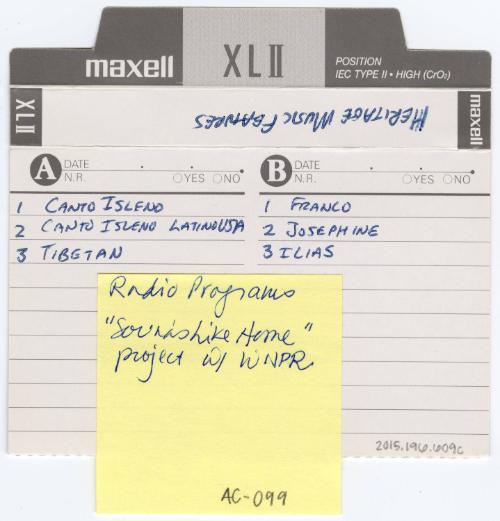 maxell
XLII
POSITION
IEC TYPE II • HIGH (CrO₂)
XLII
HERITAGE MUSIC FEATURES
maxell
A DATE
N.R. YES NO
1 CANTO ISLENO
2 CANTO ISLENO LATINOUSA
3 TIBETAN
B DATE
N.R. YES NO
1 FRANCO
2 JOSEPHINE
3 ILIAS
Radio Programs
"Sounds Like Home"
project w/ WNPR
AC-099
2015.196.609c